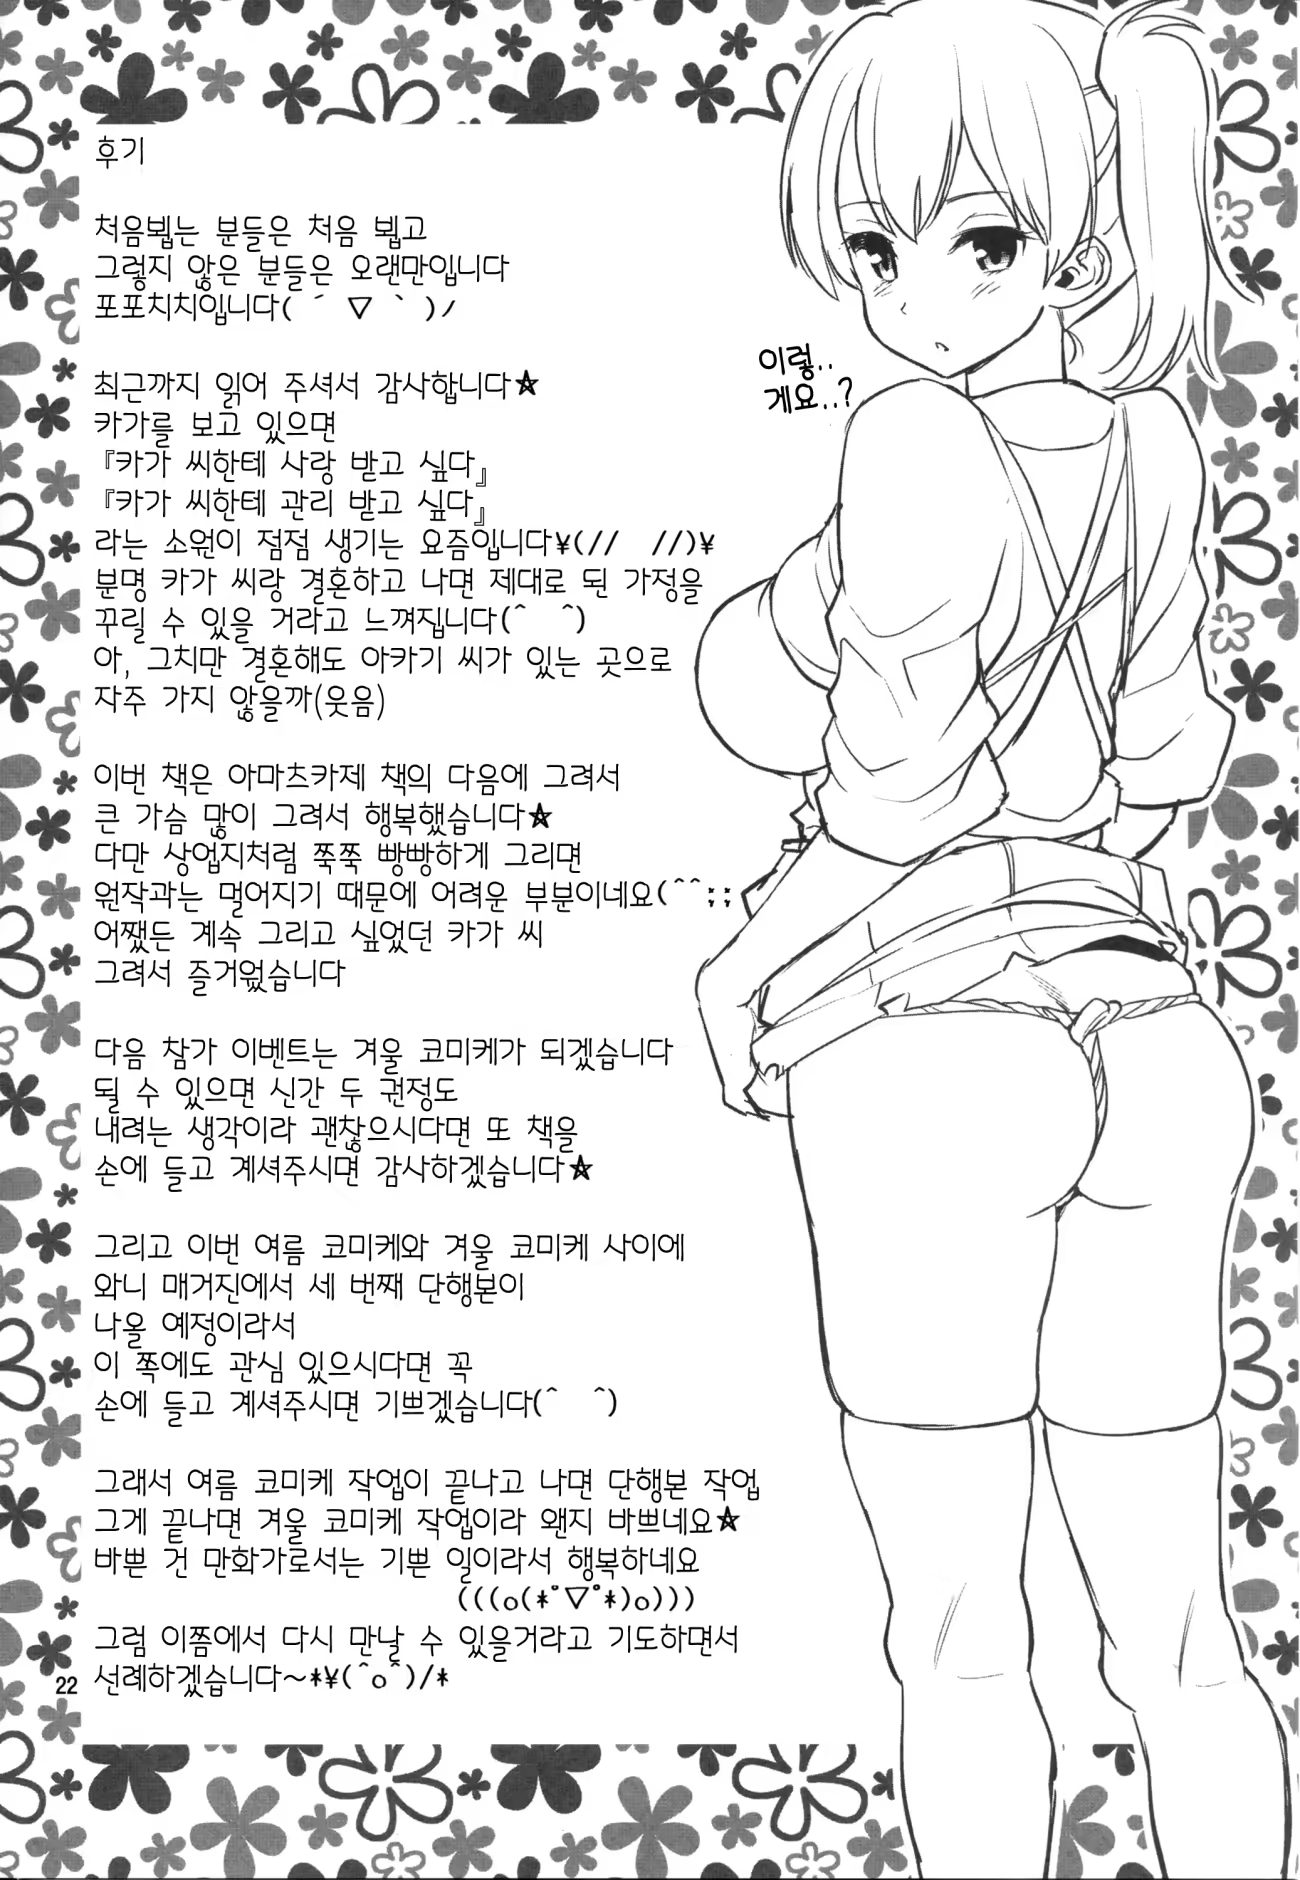 후기
처음뵙는 분들은 처음 뵙고
그렇지 않은 분들은 오랜만입니다
포포치치입니다( ´ ▽ ` )ノ
최근까지 읽어 주셔서 감사합니다☆
카가를 보고 있으면
『카가 씨한테 사랑 받고 싶다』
『카가 씨한테 관리 받고 싶다』
라는 소원이 점점 생기는 요즘입니다¥(//　//)¥
분명 카가 씨랑 결혼하고 나면 제대로 된 가정을
꾸릴 수 있을 거라고 느껴집니다(^　^)
아, 그치만 결혼해도 아카기 씨가 있는 곳으로
자주 가지 않을까(웃음)
이번 책은 아마츠카제 책의 다음에 그려서
큰 가슴 많이 그려서 행복했습니다☆
다만 상업지처럼 쭉쭉 빵빵하게 그리면
원작과는 멀어지기 때문에 어려운 부분이네요(^^;;
어쨌든 계속 그리고 싶었던 카가 씨
그려서 즐거웠습니다
다음 참가 이벤트는 겨울 코미케가 되겠습니다
될 수 있으면 신간 두 권정도
내려는 생각이라 괜찮으시다면 또 책을
손에 들고 계셔주시면 감사하겠습니다☆
그리고 이번 여름 코미케와 겨울 코미케 사이에
와니 매거진에서 세 번째 단행본이
나올 예정이라서
이 쪽에도 관심 있으시다면 꼭
손에 들고 계셔주시면 기쁘겠습니다(^　^)
그래서 여름 코미케 작업이 끝나고 나면 단행본 작업
그게 끝나면 겨울 코미케 작업이라 왠지 바쁘네요☆
바쁜 건 만화가로서는 기쁜 일이라서 행복하네요
(((o(*ﾟ▽ﾟ*)o)))
그럼 이쯤에서 다시 만날 수 있을거라고 기도하면서
선례하겠습니다~*¥(^o^)/*
이렇..
게요..?
22